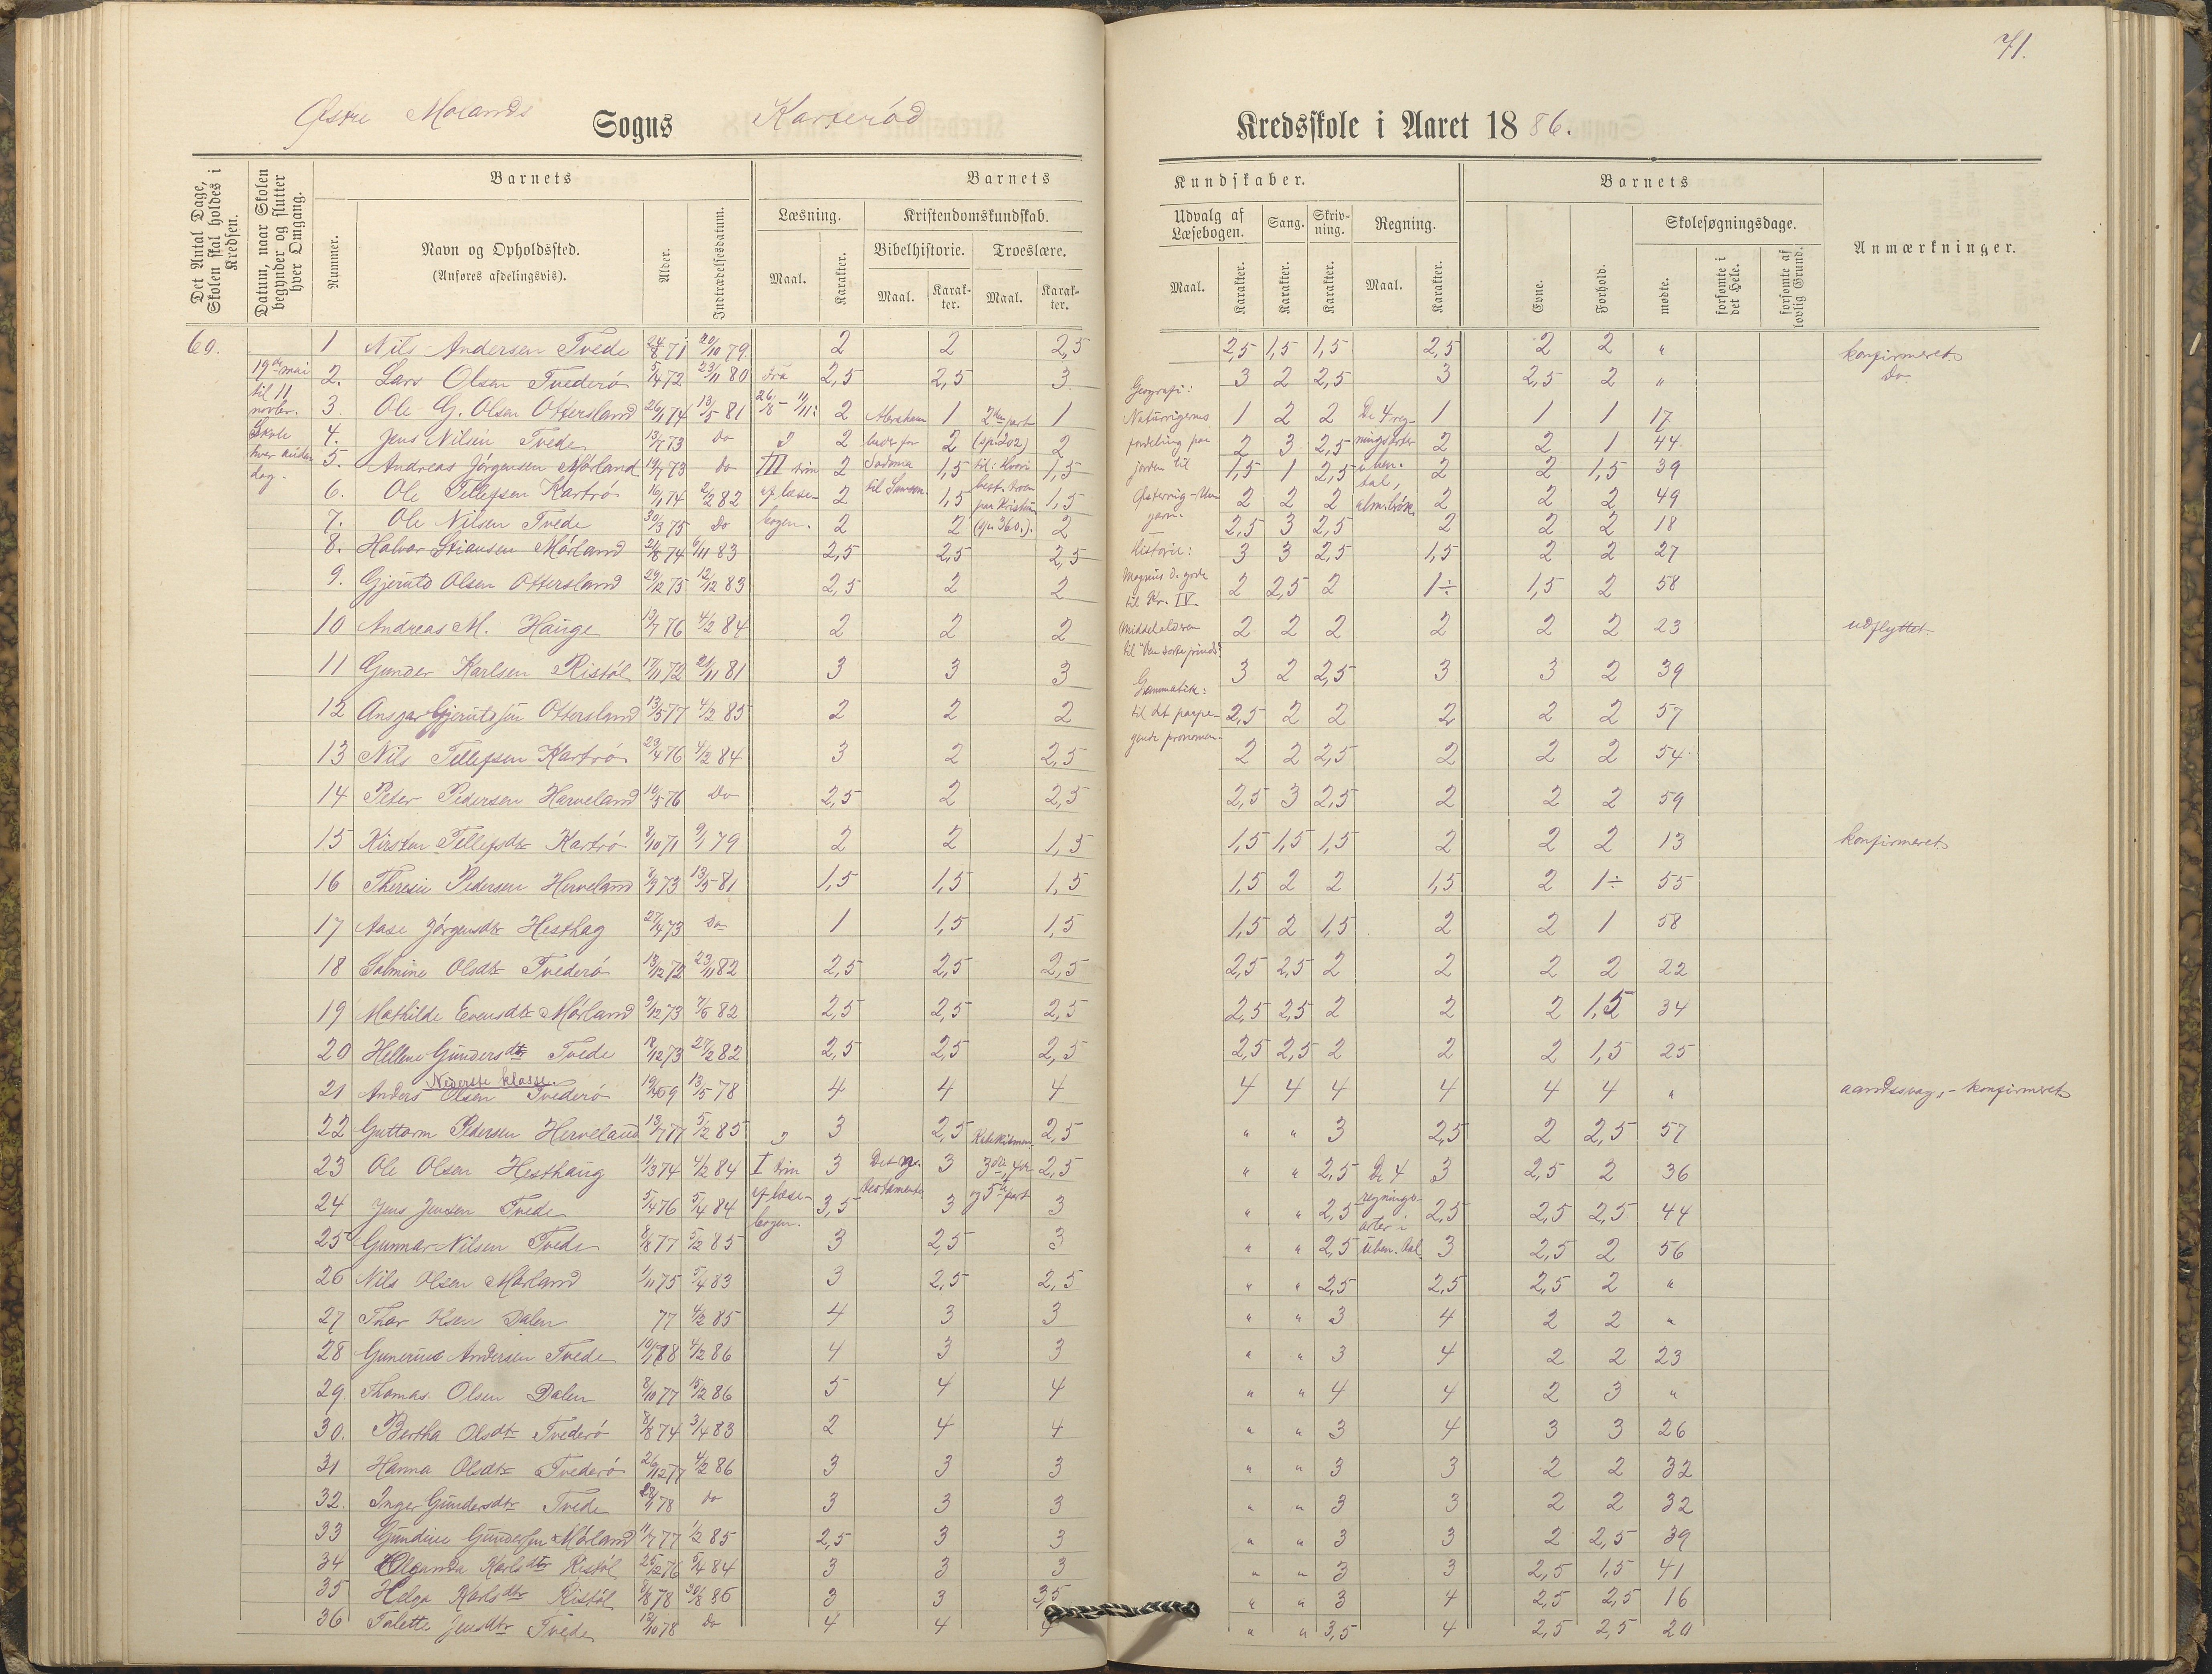 71.
Østre Molands Sogns Karterød Kredsskole i Aaret 1886.
Det Antal Dage, Skolen skal holdes i Kredsen.
Datum, naar Skolen begynder og slutter hver Omgang.
Barnets
Nummer.
Navn og Opholdssted.
(Anføres afdelingsvis).
Alder.
Indtrædelsesdatum.
Barnets Kundskaber.
Læsning.
Maal.
Karakter.
Kristendomskundskab.
Bibelhistorie.
Maal.
Karakter.
Troeslære.
Maal.
Karakter.
Udvalg af Læsebogen.
Maal.
Karakter.
Sang.
Karakter.
Skrivning.
Karakter.
Regning.
Maal.
Karakter.
Barnets
Evne.
Forhold.
Skolesøgningsdage.
mødte.
forsømte i det Hele.
forsømte af lovlig Grund.
Anmærkninger.
60.
19de mai til 11 novbr. Skole hver anden dag.
1 Nils Andersen Tvede 24/8 71 20/10 79 2 2 2,5 2,5 1,5 1,5 2,5 2 2 " konfirmeret
2. Lars Olsen Tvederø 5/4 72 23/11 80 2,5 2,5 3 3 2 2,5 3 2,5 2 " Do
3. Ole G. Olsen Ottersland 26/1 74 13/5 81 2 1 1 1 2 2 1 1 1 17
4. Jens Nilsen Tvede 13/7 73 Do 2 2 2 2 3 2,5 2 2 1 44
5. Andreas Jørgensen Mørland 19/7 73 Do 2 1,5 1,5 1,5 1 2,5 2 2 1,5 39
6. Ole Tellefsen Kartrø 16/1 74 2/2 82 2 1,5 1,5 2 2 2 2 2 2 49
7. Ole Nilsen Tvede 30/3 75 Do 2 2 2 2,5 3 2,5 2 2 2 18
8. Halvor Stiansen Mørland 21/8 74 6/11 83 2,5 2,5 2,5 3 3 2,5 1,5 2 2 27
9. Gjeruld Olsen Ottersland 29/12 75 12/12 83 2,5 2 2 2 2,5 2 1÷ 1,5 2 58
10 Andreas M. Hauge 13/7 76 4/2 84 2 2 2 2 2 2 2 2 2 23 udflyttet
11 Gunder Karlsen Ristøl 17/11 72 21/11 81 3 3 3 3 2 2,5 3 3 2 39
12 Ansgar Gjerulds[en] Ottersland 13/5 77 4/2 85 2 2 2 2,5 2 2 2 2 2 57
13 Nils Tellefsen Kartrø 29/4 76 4/2 84 3 2 2,5 2 2 2,5 2 2 2 54
14 Peter Pedersen Harveland 10/5 76 Do 2,5 2 2,5 2,5 3 2,5 2 2 2 59
15 Kirsten Tellefsdtr Kartrø 8/10 71 9/1 79 2 2 1,5 1,5 1,5 1,5 2 2 2 13 konfirmeret
16 Theresie Pedersen Herveland 8/9 73 13/5 81 1,5 1,5 1,5 1,5 2 2 1,5 2 1÷ 55
17 Aase Jørgensdtr Hesthag 27/4 73 Do 1 1,5 1,5 1,5 2 1,5 2 2 1 58
18 Salmine Olsdtr Tvederø 13/12 72 23/11 82 2,5 2,5 2,5 2,5 2,5 2 2 2 2 22
19 Mathilde Evensdtr Mørland 9/12 73 7/6 82 2,5 2,5 2,5 2,5 2,5 2 2 2 1,5 34
20 Hellene Gundersdtr Tvede 18/12 73 27/2 82 2,5 2,5 2,5 2,5 2,5 2 2 2 1,5 25
Nederste klasse.
21 Anders Olsen Tvederø 13/5 78 4 4 4 4 4 4 4 4 4 " aandssvag, - konfirmeret
22 Guttorm Pedersen Herveland 13/7 77 5/2 85 3 2,5 2,5 " " 3 2,5 2 2,5 57
23 Ole Olsen Hesthaug 11/3 74 4/2 84 3 3 2,5 " " 2,5 3 2,5 2 36
24 Jens Jensen Tvede 5/4 76 5/4 84 3,5 3 3 " " 2,5 2,5 2,5 2,5 44
25 Gunnar Nilsen Tvede 8/8 77 5/2 85 3 2,5 3 " " 2,5 3 2,5 2 56
26 Nils Olsen Mørland 1/11 75 5/4 83 3 2,5 2,5 " " 2,5 2,5 2,5 2 "
27 Thor Olsen Dalen 77 4/2 85 4 3 3 " " 3 4 2 2 "
28 Gunerius Andersen Tvede 4/2 86 4 3 3 " " 3 4 2 2 23
29. Thomas Olsen Dalen 8/10 77 15/2 86 5 4 4 " " 4 4 2 3 "
30. Bertha Olsdtr Tvederø 8/8 74 3/4 83 2 4 4 " " 3 4 3 3 26
31 Hanna Olsdtr Tvederø 26/12 77 4/2 86 3 3 3 " " 3 3 2 2 32
32. Inger Gundersdtr Tvede 78 do 3 3 3 " " 3 3 2 2 32
33 Gundine Gundersen Mørland 11/7 77 1/2 85 2,5 3 3 " " 3 3 2 2,5 39
34 Olganda Karlsdtr Ristøl 25/2 76 5/4 84 3 3 3 " " 3 3 2,5 1,5 41
35 Helga Karlsdtr Ristøl 8/8 78 30/8 86 3 3 3,5 " " 3 4 2,5 2,5 16
36 Talette Jensdtr Tvede 12/10 78 Do 4 4 4 " " 3,5 4 2,5 2,5 20
Fra 26/8 - 11/11:
III trin af læsebogen.
Abraham
Sodoma til Samson.
2den part (sp. 202) til:
(sp. 360.).
Geografi: Naturrigernes fordeling paa jorden til Østerrig-Ungarn.
Historie: Magnus d. gode til Kr. IV.
Middelalderen til "Den sorte prinds".
Grammatik: til det paapegende pronomen.
De 4 regningsarter i ben. tal, alm. brøk.
I trin af læsebogen.
Det gl. testamente
Katekismen. 3die, 4de og 5te part
De 4 regningsarter i uben. tal.